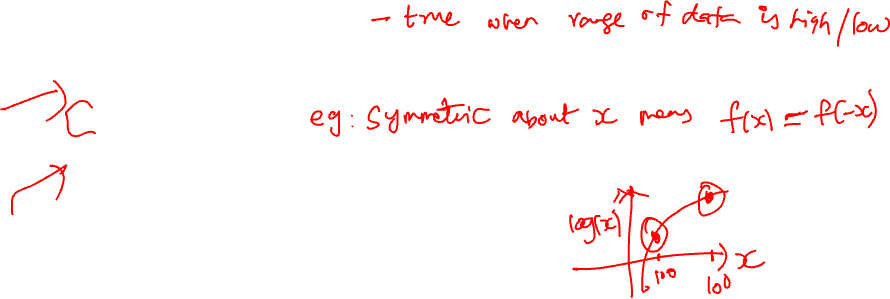 - true when range of data is high/low
C
eg: Symmetric about x means f(x) = f(-x)
log(x)
100 100 x